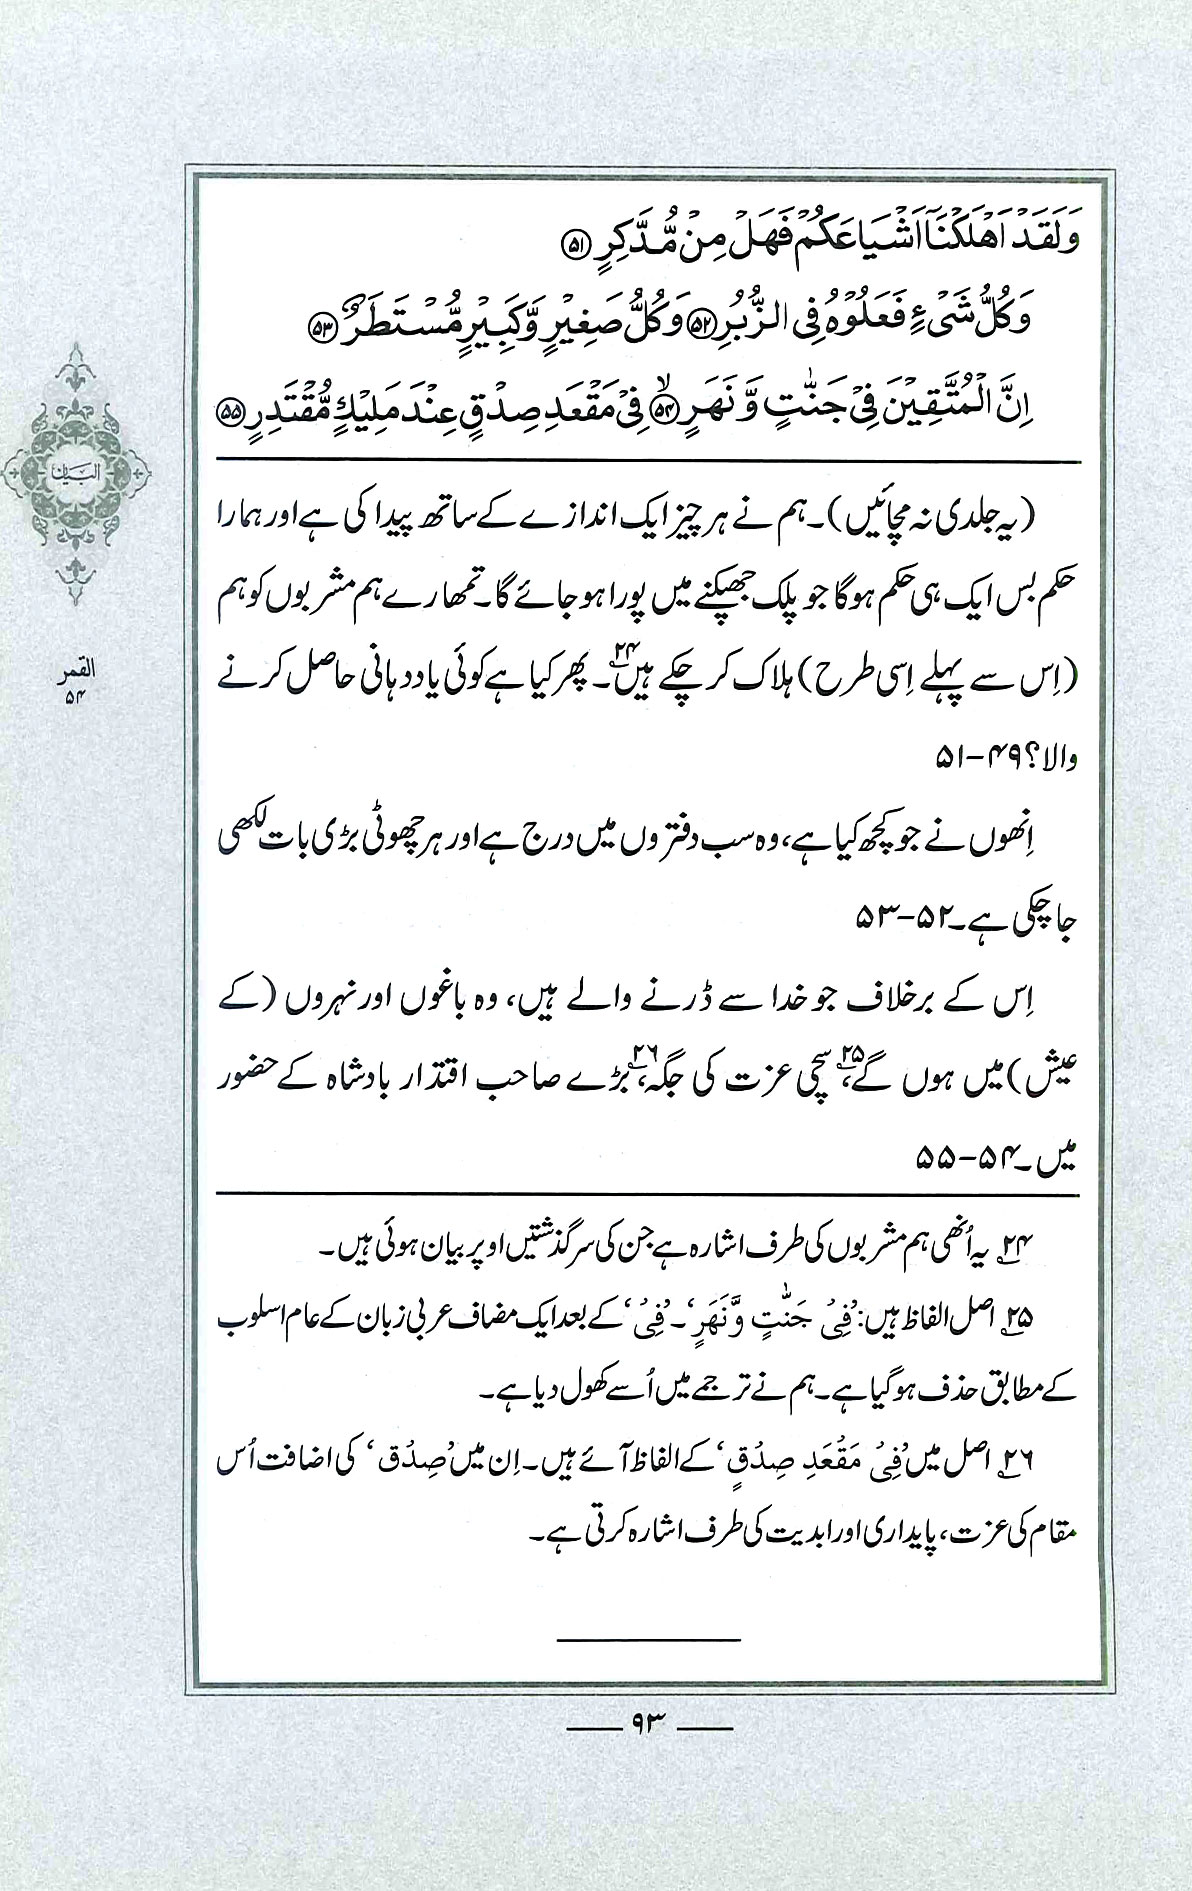 وَلَقَدْ اَهْلَكْنَآ اَشْيَاعَكُمْ فَهَلْ مِنْ مُّدَّكِرٍ ﴿۵۱﴾
وَكُلُّ شَیْءٍ فَعَلُوْهُ فِی الزُّبُرِ ﴿۵۲﴾ وَكُلُّ صَغِيْرٍ وَّكَبِيْرٍ مُّسْتَطَرٌ ﴿۵۳﴾
اِنَّ الْمُتَّقِيْنَ فِیْ جَنّٰتٍ وَّنَهَرٍ ﴿۵۴﴾ۙ فِیْ مَقْعَدِ صِدْقٍ عِنْدَ مَلِيْكٍ مُّقْتَدِرٍ ﴿۵۵﴾
البیان
القمر
۵۴
(یہ جلدی نہ مچائیں)۔ ہم نے ہر چیز ایک اندازے کے ساتھ پیدا کی ہے اور ہمارا
حکم بس ایک ہی حکم ہوگا جو پلک جھپکنے میں پورا ہو جائے گا۔ تمھارے ہم مشربوں کو ہم
(اِس سے پہلے اِسی طرح) ہلاک کر چکے ہیں۲۴۔ پھر کیا ہے کوئی یاددہانی حاصل کرنے
والا؟ ۴۹-۵۱
اِنھوں نے جو کچھ کیا ہے، وہ سب دفتروں میں درج ہے اور ہر چھوٹی بڑی بات لکھی
جا چکی ہے۔ ۵۲-۵۳
اِس کے برخلاف جو خدا سے ڈرنے والے ہیں، وہ باغوں اور نہروں (کے
عیش) میں ہوں گے،۲۵ سچی عزت کی جگہ،۲۶ بڑے صاحب اقتدار بادشاہ کے حضور
میں۔ ۵۴-۵۵
۲۴ یہ اُنھی ہم مشربوں کی طرف اشارہ ہے جن کی سرگذشتیں اوپر بیان ہوئی ہیں۔
۲۵ اصل الفاظ ہیں: ’فِیْ جَنّٰتٍ وَّنَهَرٍ‘۔ ’فِیْ‘ کے بعد ایک مضاف عربی زبان کے عام اسلوب
کے مطابق حذف ہوگیا ہے۔ ہم نے ترجمے میں اُسے کھول دیا ہے۔
۲۶ اصل میں ’فِیْ مَقْعَدِ صِدْقٍ‘ کے الفاظ آئے ہیں۔ اِن میں ’صِدْق‘ کی اضافت اُس
مقام کی عزت، پایداری اور ابدیت کی طرف اشارہ کرتی ہے۔
۹۳